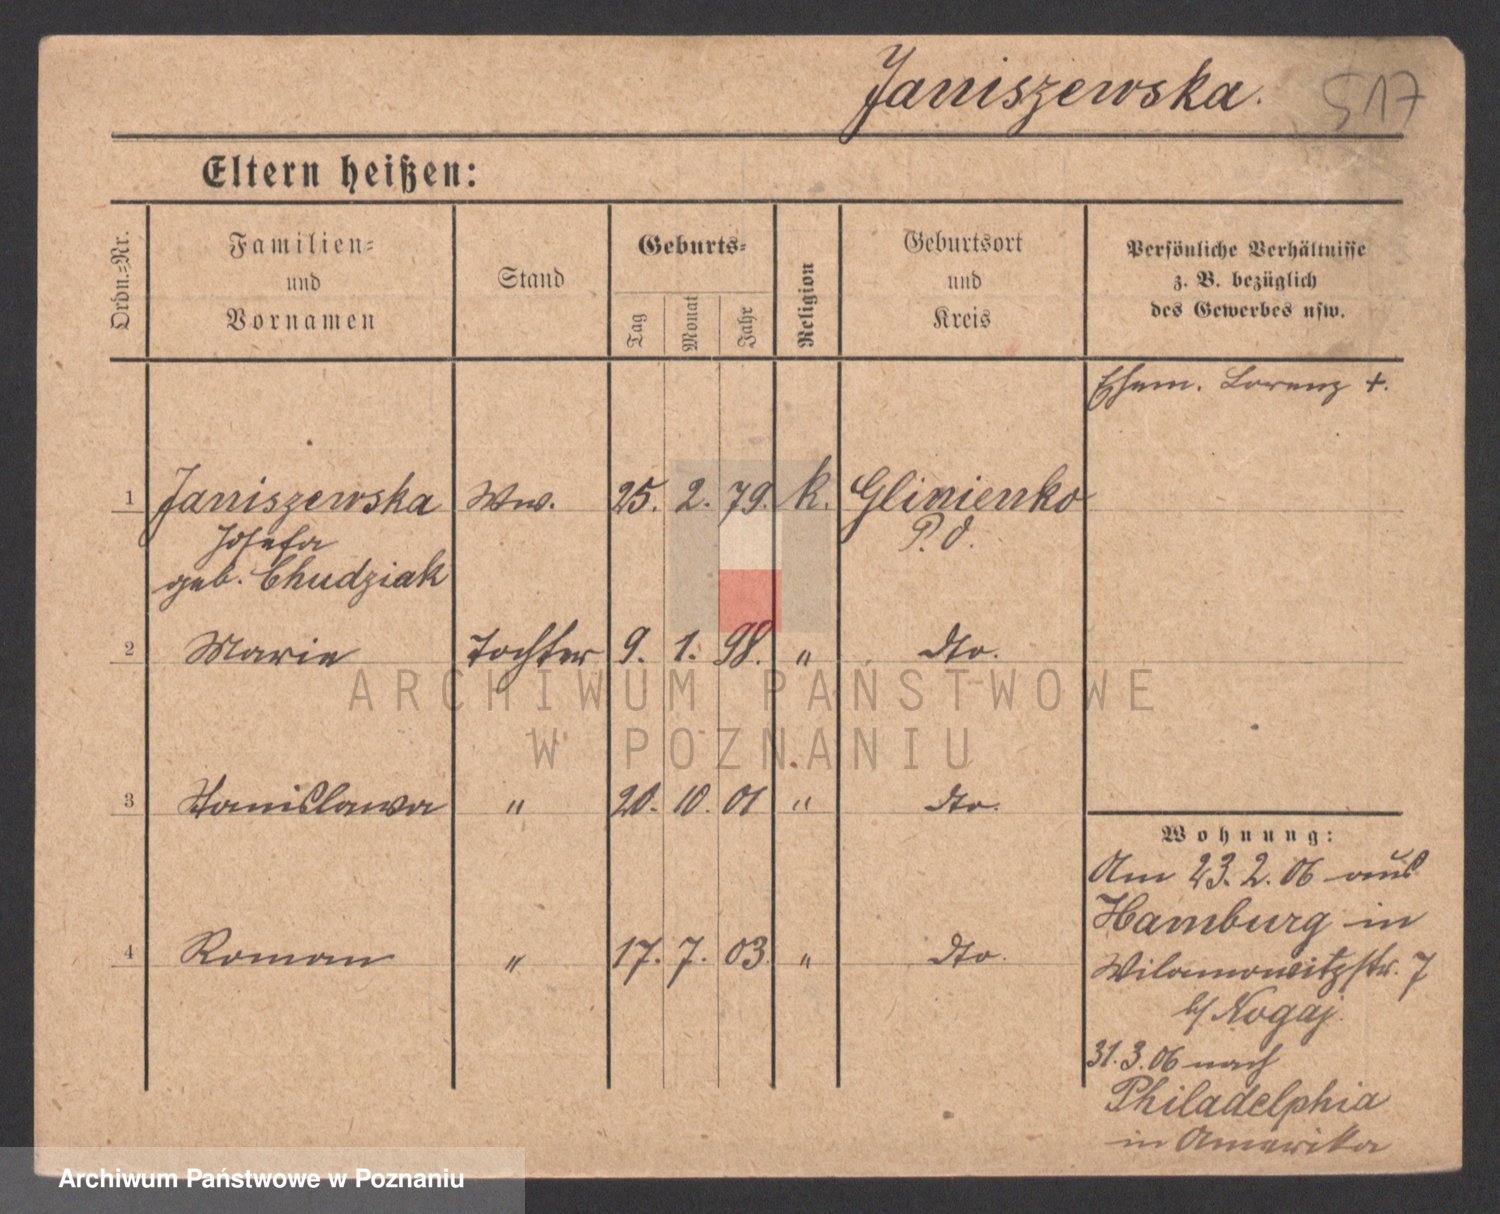 Janiszewska.
517
Eltern heißen:
Ordn.=Nr.
Familien=
und
Vornamen
Stand
Geburts=
Tag
Monat
Jahr
Religion
Geburtsort
und
Kreis
Persönliche Verhältnisse
z. B. bezüglich
des Gewerbes usw.
Ehem. Lorenz +.
1 Janiszewska Ww. 25. 2. 79. k. Glinienko
Josefa P. O.
geb. Chudziak
2 Marie Tochter 9. 1. 98. " dto.
3 Stanislawa " 20. 10. 01 " dto.
4 Roman " 17. 7. 03. " dto.
Wohnung:
Am 23. 2. 06 aus
Hamburg in
Wilamowitzstr. 7
b/ Nogaj.
31. 3. 06 nach
Philadelphia
in Amerika
ARCHIWUM PAŃSTWOWE
W POZNANIU
Archiwum Państwowe w Poznaniu